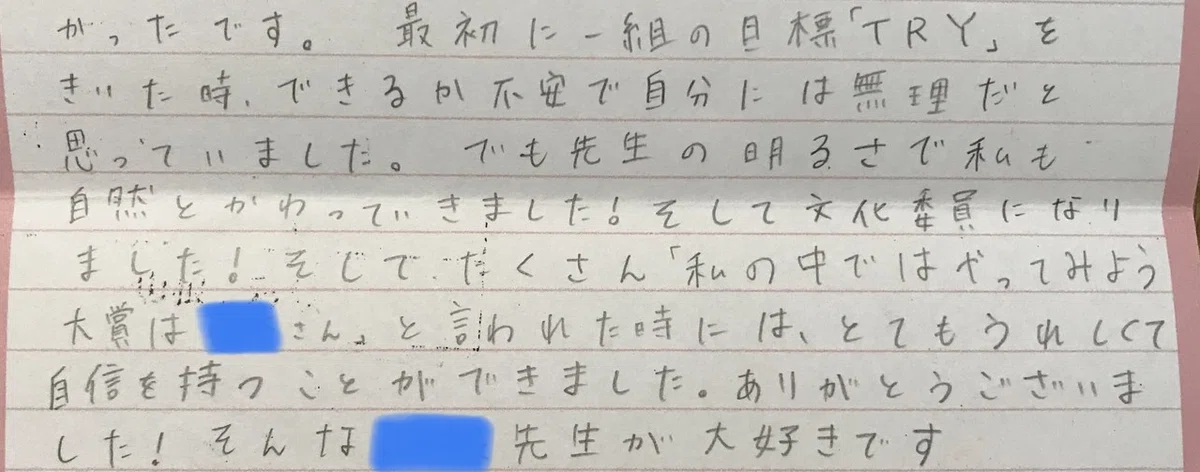 かったです。 最初に一組の目標「TRY」を
きいた時、できるか不安で自分には無理だと
思っていました。 でも先生の明るさで私も
自然とかわっていきました!そして文化委員になり
ました!そしてたくさん「私の中ではやってみよう
大賞は さん」と言われた時には、とてもうれしくて
自信を持つことができました。ありがとうございま
した!そんな 先生が大好きです